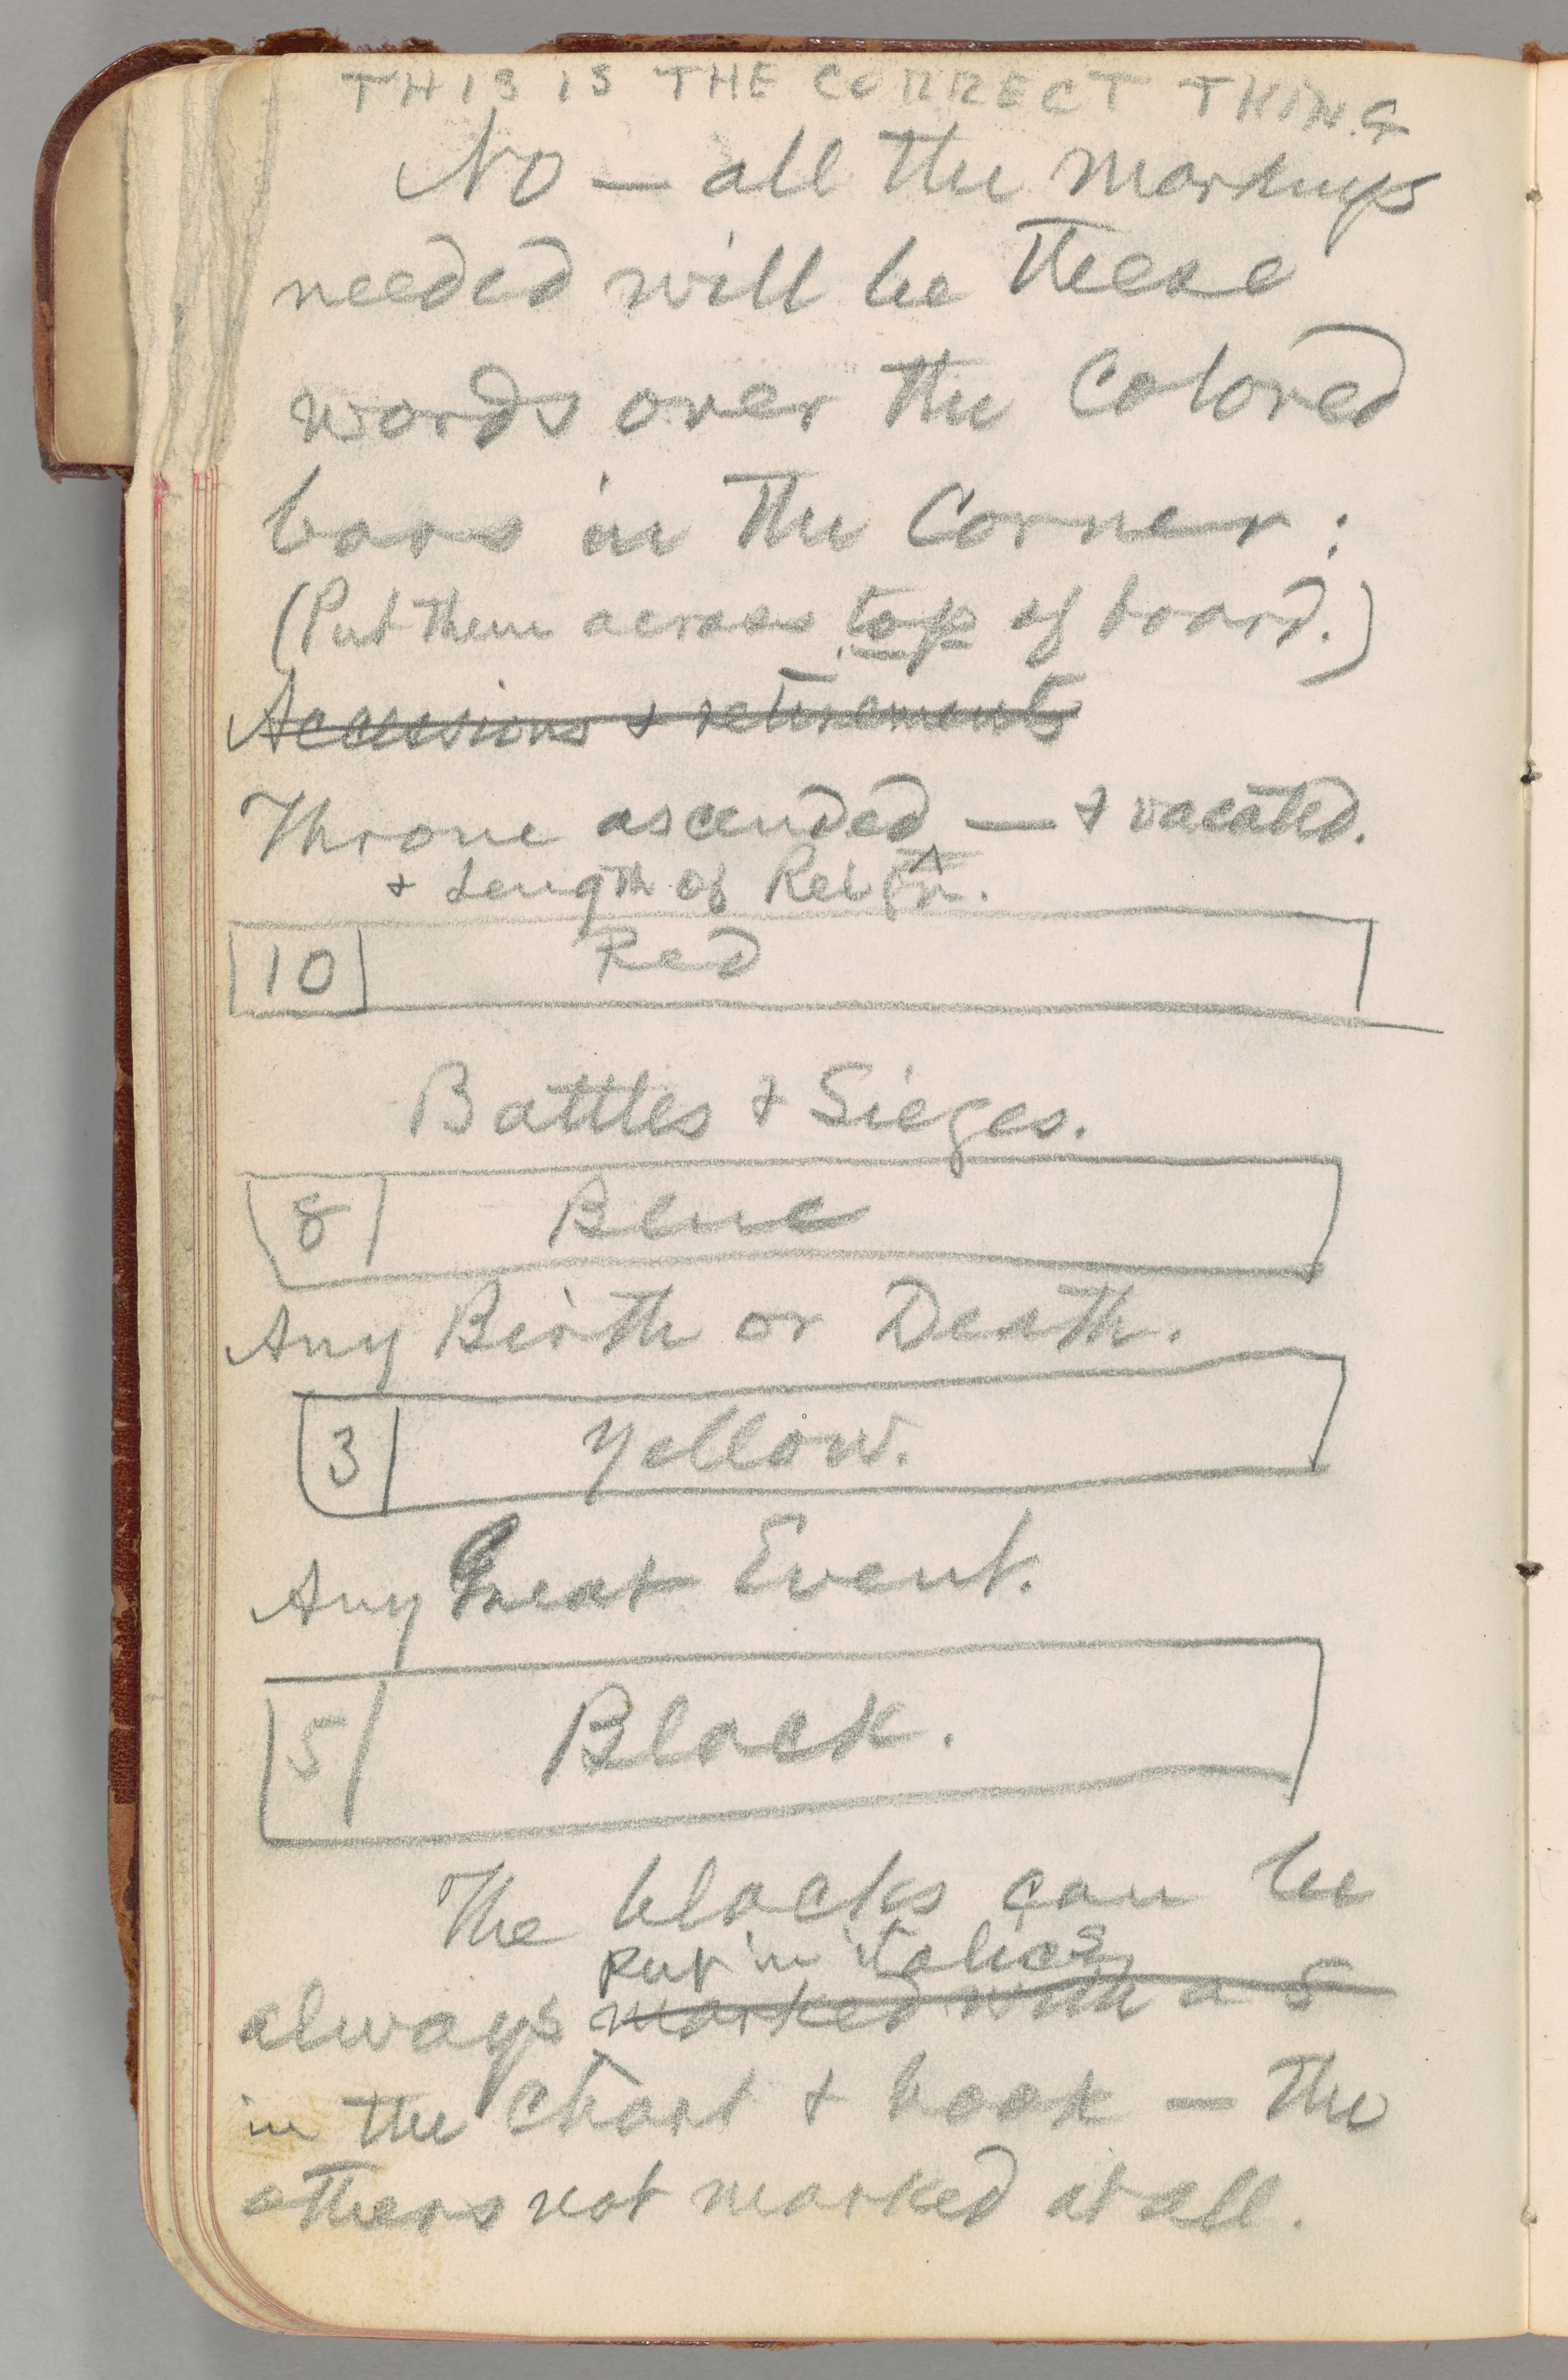 THIS IS THE CORRECT THING
No — all the markings
needed will be these
words over the Colored
bars in the Corner:
(Put them across top of board.)
Accessions & retirements
Throne ascended — & vacated.
& Length of Reign.
10 Red
Battles & Sieges.
8 Blue
Any Birth or Death.
3 Yellow.
Any Great Event.
5 Black.
The blacks can be
put in italics
always marked with a 5
in the chart & book — the
others not marked at all.